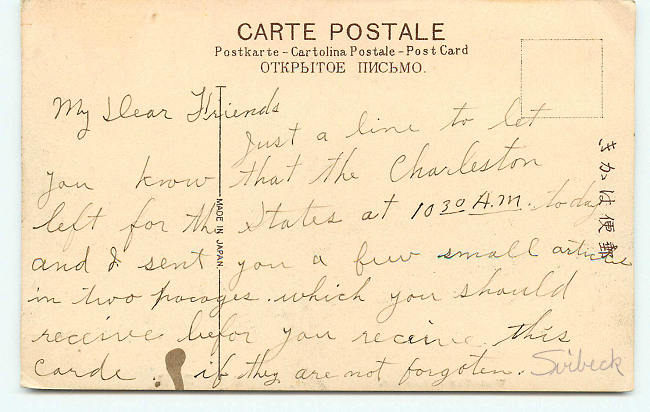 CARTE POSTALE
Postkarte – Cartolina Postale – Post Card
ОТКРЫТОЕ ПИСЬМО.
きかは便郵
MADE IN JAPAN.
My Dear Friends
Just a line to let
you know that the Charleston
left for the States at 10 30 A.M. today
and I sent you a few small articles
in two pacages. which you should
receive befor you receive this
carde. if they are not forgoten.
Svibeck